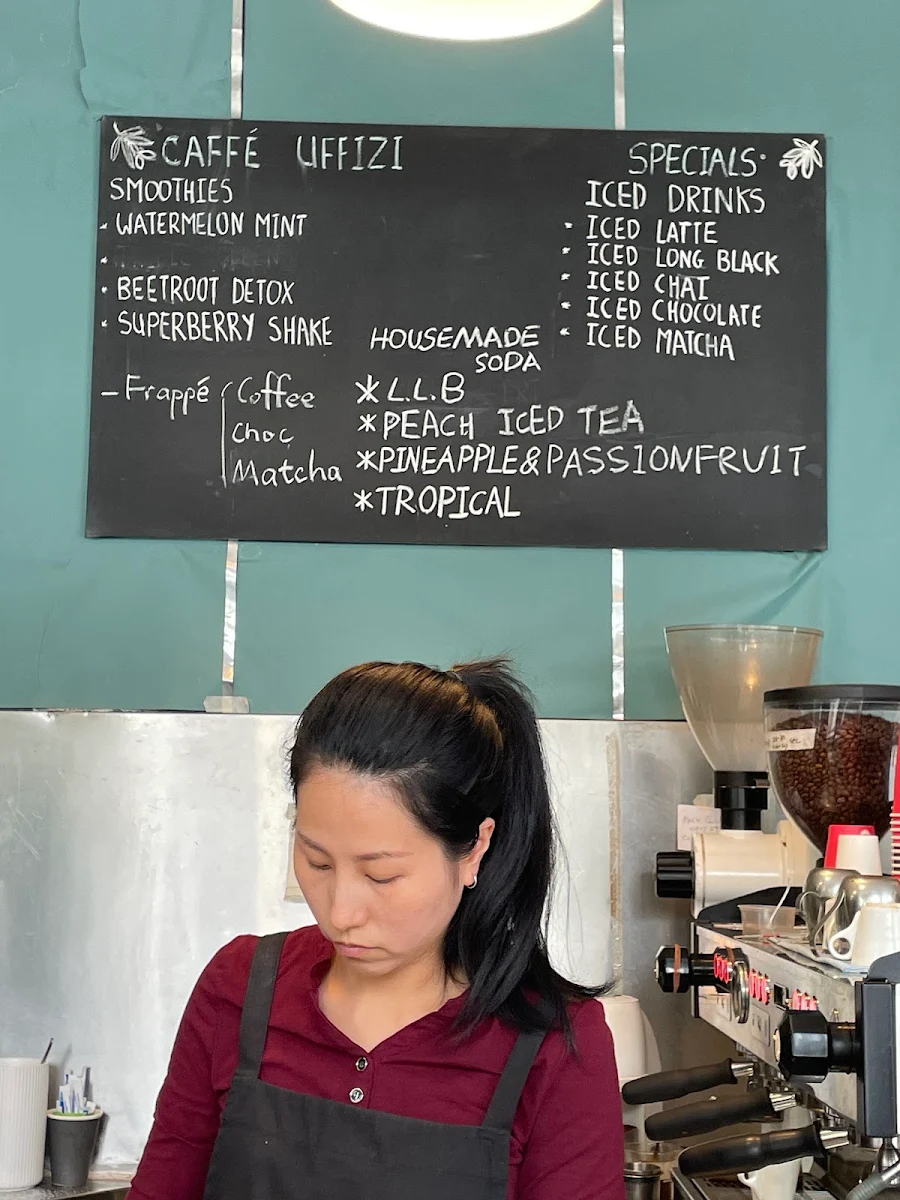 CAFFÉ UFFIZI
SMOOTHIES
- WATERMELON MINT
- BEETROOT DETOX
- SUPERBERRY SHAKE
– Frappé
Coffee
Choc
Matcha
HOUSEMADE
SODA
* L.L.B
* PEACH ICED TEA
* PINEAPPLE & PASSIONFRUIT
* TROPICAL
SPECIALS
ICED DRINKS
- ICED LATTE
- ICED LONG BLACK
- ICED CHAI
- ICED CHOCOLATE
- ICED MATCHA